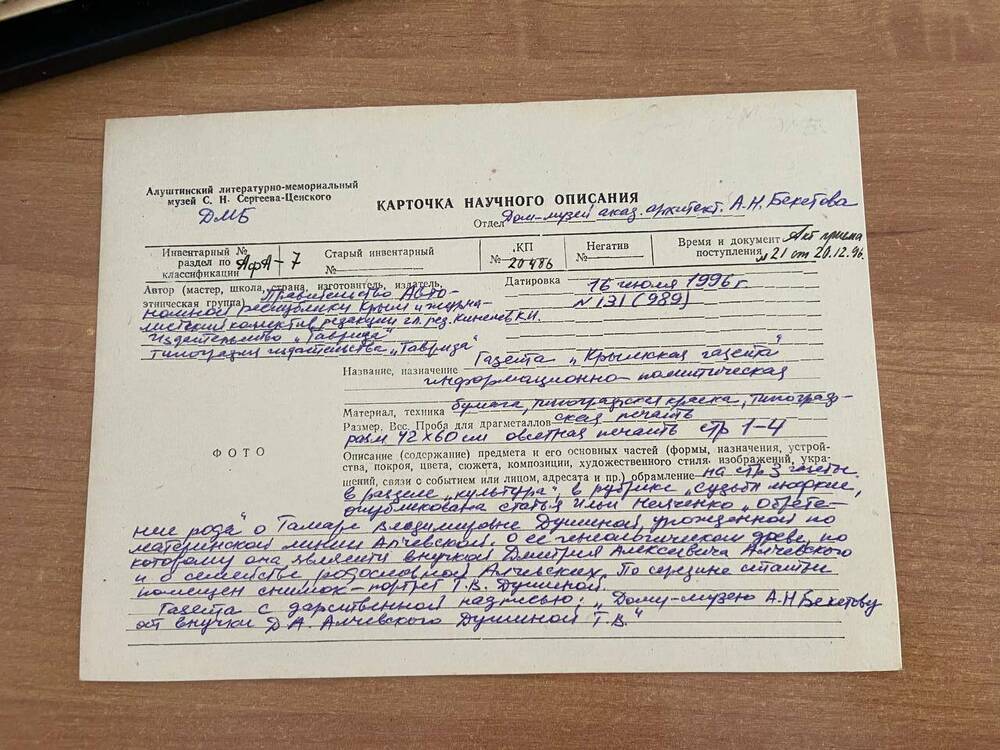 Алуштинский литературно-мемориальный
музей С. Н. Сергеева-Ценского
ДМБ
КАРТОЧКА НАУЧНОГО ОПИСАНИЯ
Отдел Дом-музей акад. архитект. А.Н. Бекетова
Инвентарный №
раздел по
классификации АфА-7
Старый инвентарный
№
КП
№ 20486
Негатив
№
Время и документ Акт приема
поступления № 21 от 20.12.96.
Автор (мастер, школа, страна, изготовитель, издатель,
этническая группа) Правительство Авто-
номной республики Крым и журна-
листский коллектив редакции гл. ред. Киселев К.И.
издательство „Таврида"
типография издательства „Таврида"
Датировка 16 июля 1996 г
N 131 (989)
Название, назначение Газета „Крымская газета"
информационно-политическая
Материал, техника бумага, типографская краска, типограф-
Размер, Вес. Проба для драгметаллов ская печать
разм 42 х 60 см офсетная печать стр 1-4
ФОТО
Описание (содержание) предмета и его основных частей (формы, назначения, устрой-
ства, покроя, цвета, сюжета, композиции, художественного стиля, изображений, укра-
шений, связи с событием или лицом, адресата и пр.) обрамление на стр 3 газеты
в разделе „культура", в рубрике „Судьбы людские,
опубликована статья Ильи „Обрете-
ние рода" о Тамаре Владимировне Душиной, урожденной по
материнской линии Алчевской. О ее генеологическом древе, по
которому она является внучкой Дмитрия Алексеевича Алчевского
и о семействе родословной Алчевских. По середине статьи
помещен снимок-портрет Т.В. Душиной.
Газета с дарственной надписью: „Дому-музею А.Н Бекетову
от внучки Д А. Алчевского Душиной Т.В."